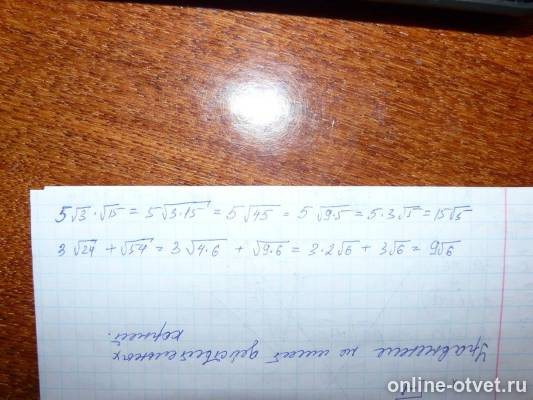 5√3·√15 = 5√3·15 = 5√45 = 5√9·5 = 5·3√5 = 15√5
3√24 + √54 = 3√4·6 + √9·6 = 3·2√6 + 3√6 = 9√6
Уравнение не имеет действительных
корней.
online-otvet.ru